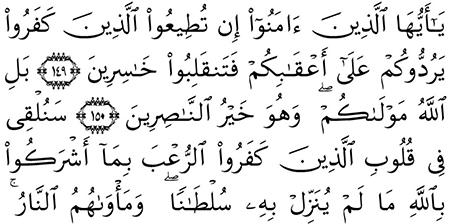 يَـٰٓأَيُّهَا ٱلَّذِينَ ءَامَنُوٓا۟ إِن تُطِيعُوا۟ ٱلَّذِينَ كَفَرُوا۟
يَرُدُّوكُمْ عَلَىٰٓ أَعْقَـٰبِكُمْ فَتَنقَلِبُوا۟ خَـٰسِرِينَ ١٤٩ بَلِ
ٱللَّهُ مَوْلَىٰكُمْ ۖ وَهُوَ خَيْرُ ٱلنَّـٰصِرِينَ ١٥٠ سَنُلْقِى
فِى قُلُوبِ ٱلَّذِينَ كَفَرُوا۟ ٱلرُّعْبَ بِمَآ أَشْرَكُوا۟
بِٱللَّهِ مَا لَمْ يُنَزِّلْ بِهِۦ سُلْطَـٰنًا ۖ وَمَأْوَىٰهُمُ ٱلنَّارُ ۚ